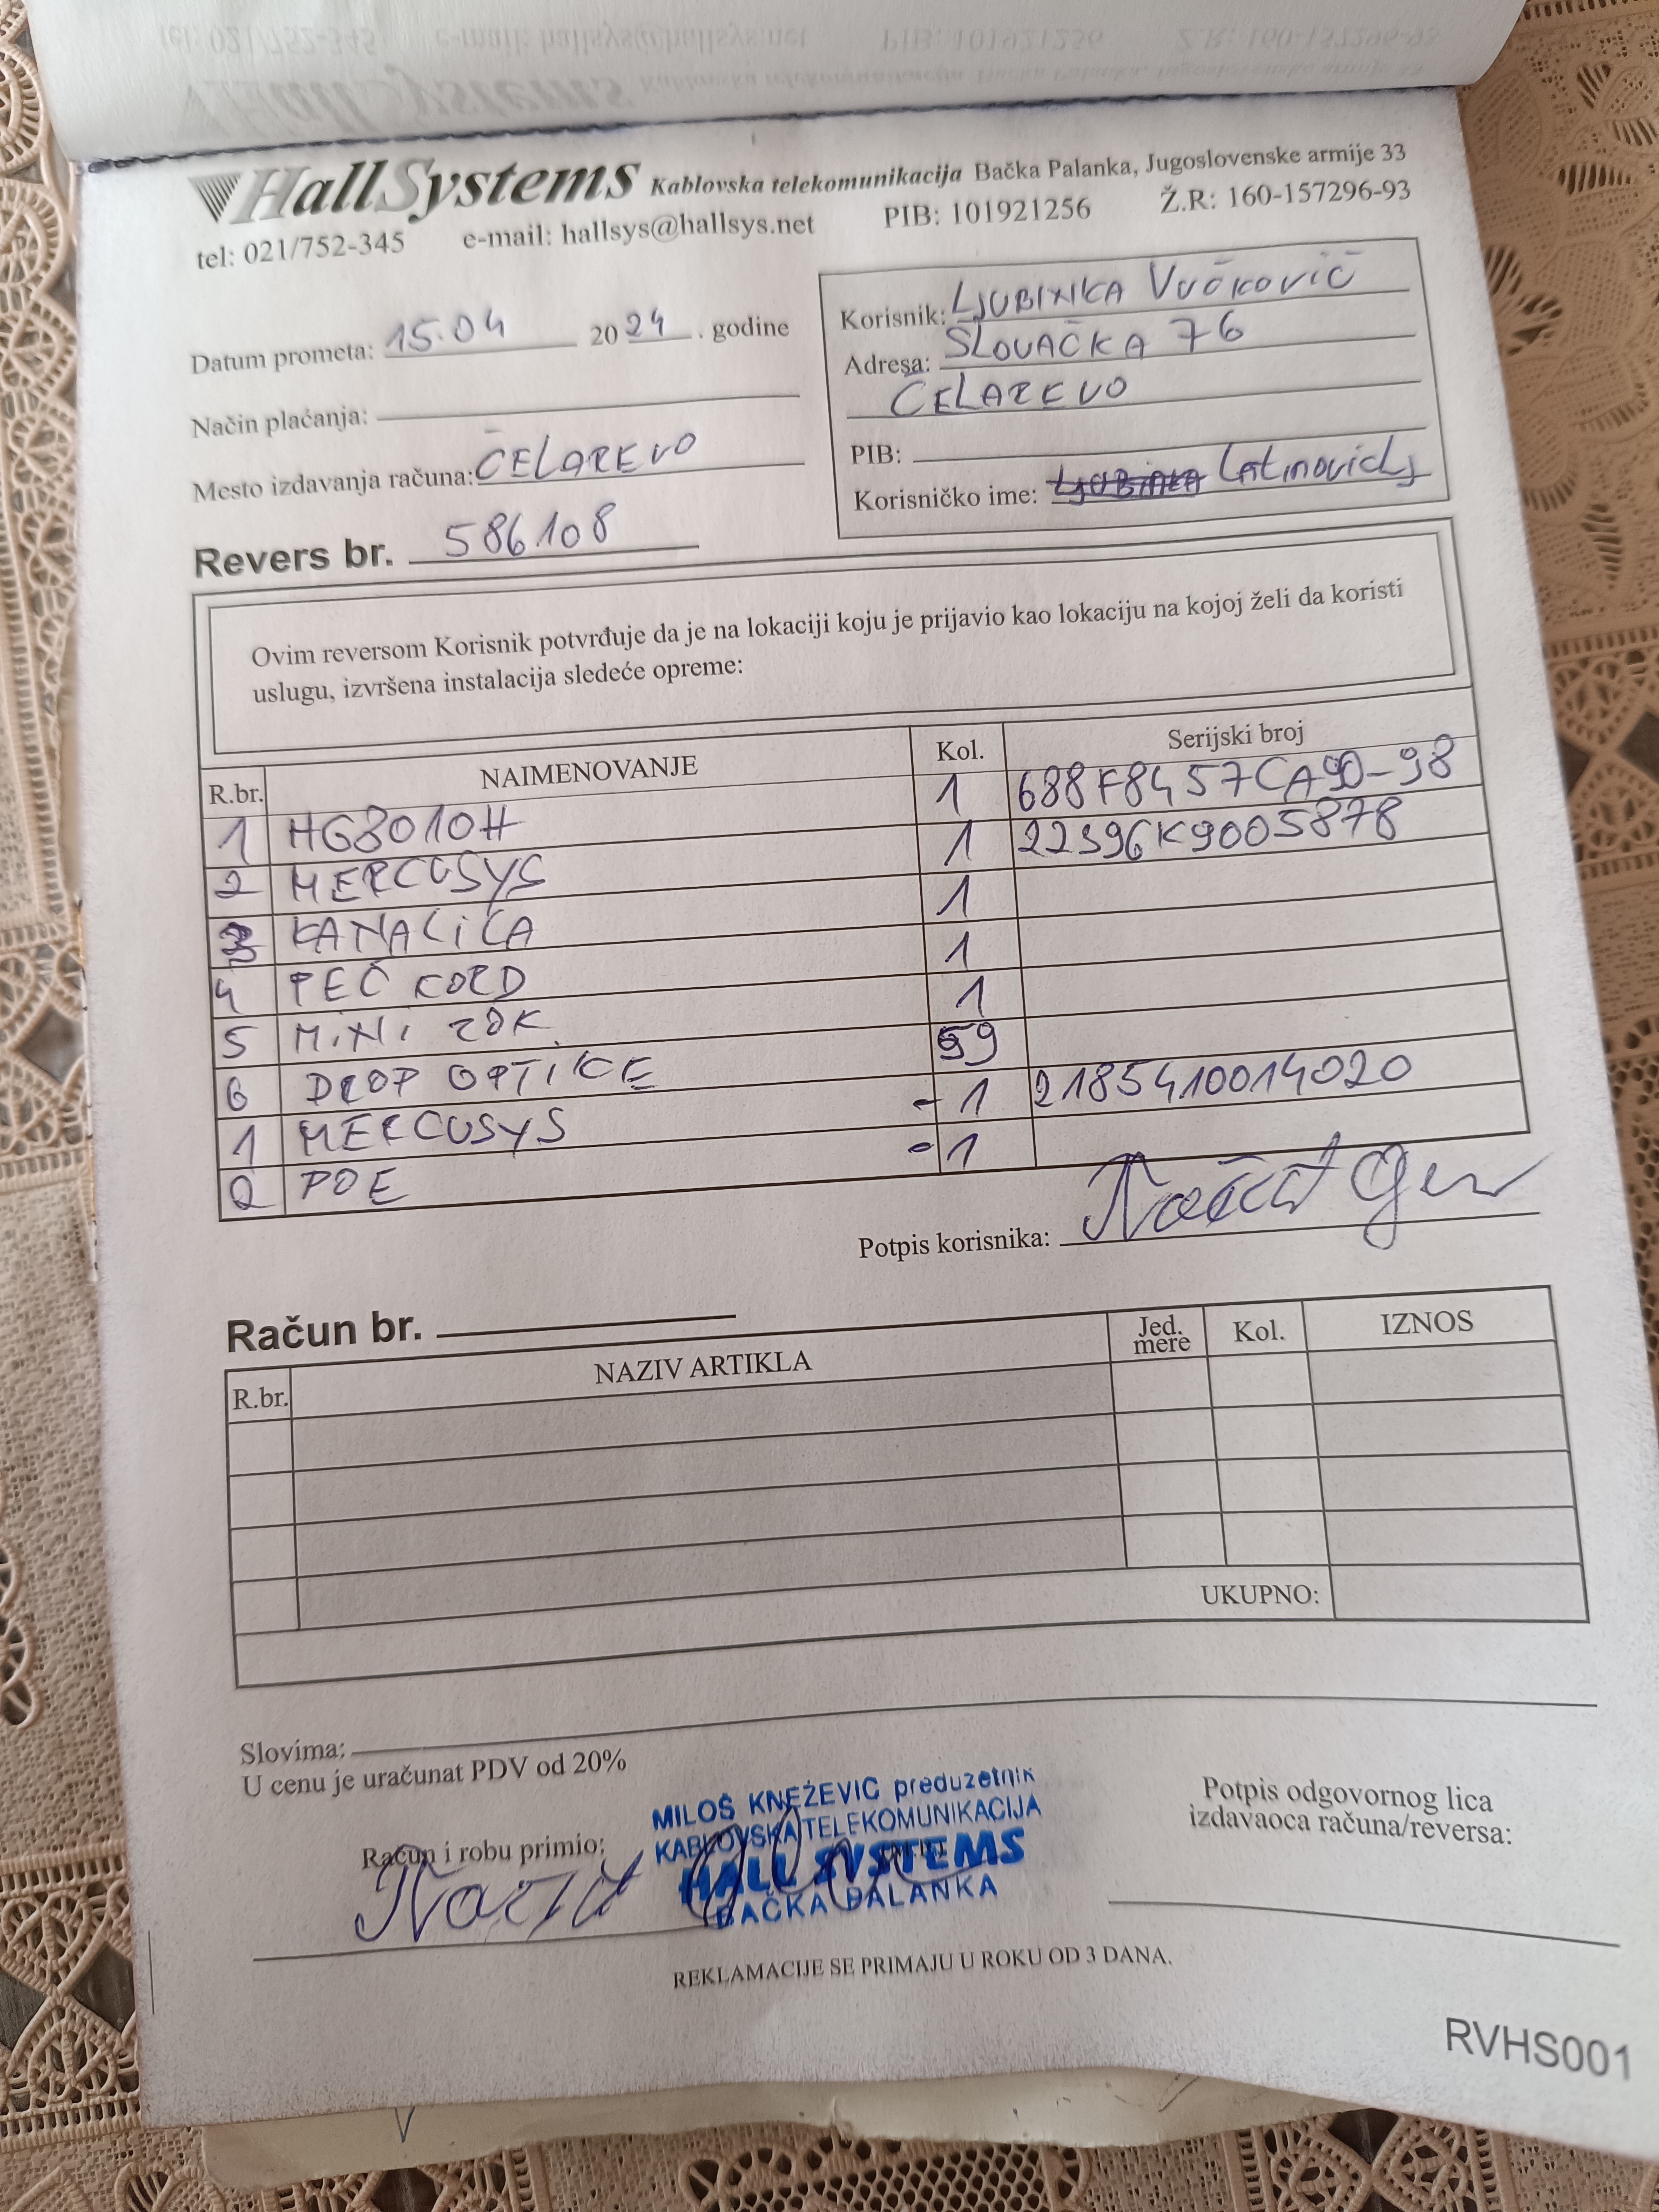 HallSystems Kablovska telekomunikacija Bačka Palanka, Jugoslovenske armije 33
tel: 021/752-345 e-mail: hallsys@hallsys.net PIB: 101921256 Ž.R: 160-157296-93
Datum prometa: 15.04 2024. godine
Način plaćanja:
Mesto izdavanja računa: ČELAREVO
Revers br. 586108
Korisnik: LJUBINKA VUČKOVIĆ
Adresa: SLOVAČKA 76
ČELAREVO
PIB:
Korisničko ime: Latinovichj
Ovim reversom Korisnik potvrđuje da je na lokaciji koju je prijavio kao lokaciju na kojoj želi da koristi
uslugu, izvršena instalacija sledeće opreme:
R.br. NAIMENOVANJE Kol. Serijski broj
1 HG8010H 1 688F8457CA90-98
2 MERCUSYS 1 22396K9005878
3 KANALICA 1
4 PEČ KORD 1
5 MINI ZOK 1
6 DROP OPTIKE 59
1 MERCUSYS -1 2185410014020
2 POE -1
Potpis korisnika:
Račun br.
R.br. NAZIV ARTIKLA Jed. mere Kol. IZNOS
UKUPNO:
Slovima:
U cenu je uračunat PDV od 20%
Račun i robu primio:
MILOŠ KNEŽEVIĆ preduzetnik
KABLOVSKA TELEKOMUNIKACIJA
HALL SYSTEMS
BAČKA PALANKA
Potpis odgovornog lica
izdavaoca računa/reversa:
REKLAMACIJE SE PRIMAJU U ROKU OD 3 DANA.
RVHS001